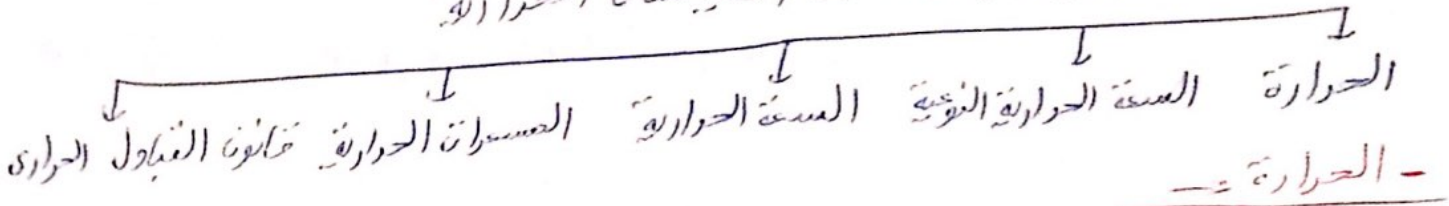 الحرارة السعة الحرارية النوعية السعة الحرارية المسعرات الحرارية قانون التبادل الحرارى
- الحرارة :-